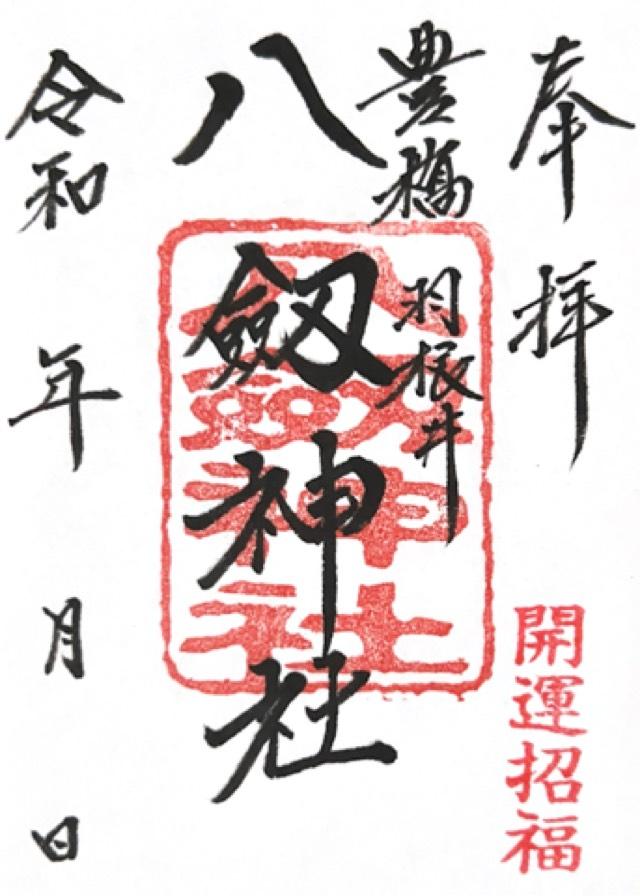 奉拝
開運招福
豊橋 羽根井
八劔神社
八劔神社
令和 年 月 日